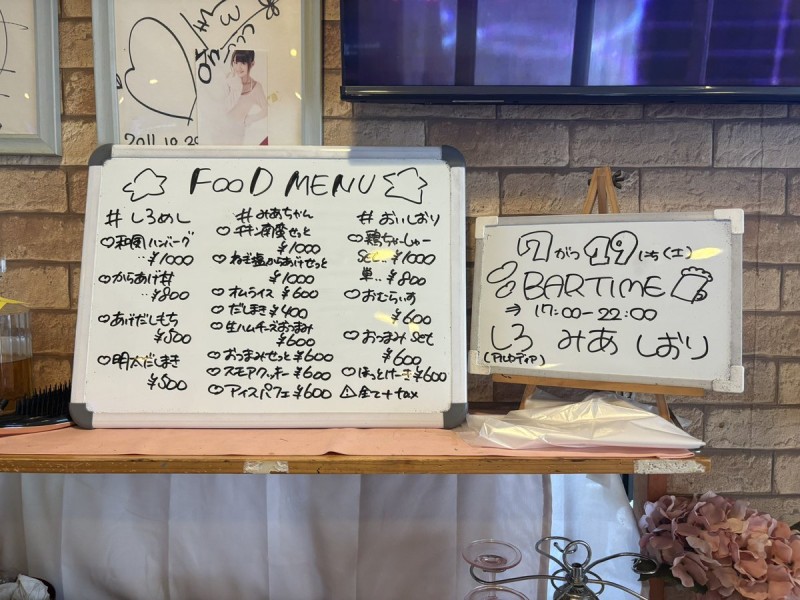 2011.10.29
FOOD MENU
# しろめし
♡和風ハンバーグ
‥¥1000
♡からあげ丼
‥¥800
♡あげだしもち
¥500
♡明太だしまき
¥500
# みあちゃん
♡チキン南蛮せっと
¥1000
♡ねぎ塩からあげせっと
¥1000
♡オムライス ¥600
♡だしまき ¥400
♡生ハムチーズおつまみ
¥600
♡おつまみせっと ¥600
♡スモアクッキー ¥600
♡アイスパフェ ¥600
# おいしおり
♡鶏ちゃーしゅー
SET‥¥1000
単‥¥800
♡おむらいす
¥600
♡おつまみ SET
¥600
♡ほっとけーき ¥600
⚠全て+tax
7がつ19にち(土)
BARTIME
⇒ 17:00-22:00
しろ みあ しおり